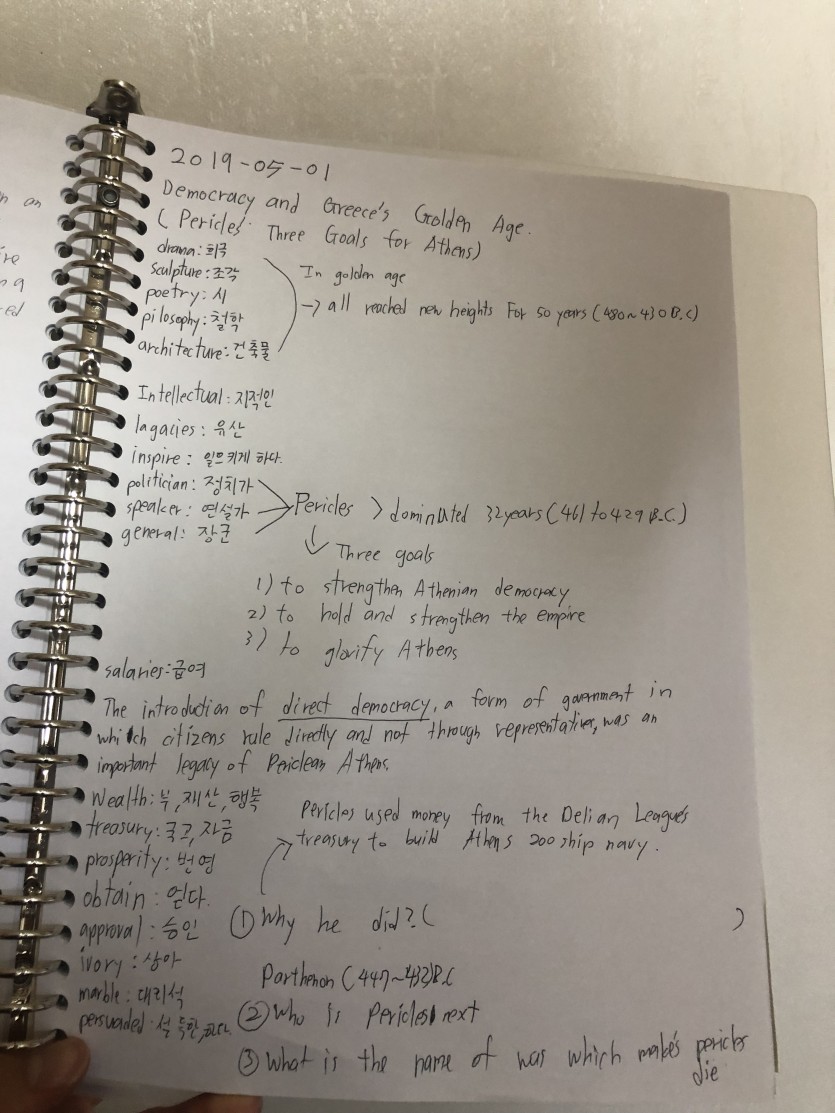 n an
ire
n a
red
2019-05-01
Democracy and Greece's Golden Age.
( Pericles' Three Goals for Athens)
drama:희극
sculpture: 조각
poetry: 시
pilosophy: 철학
architecture: 건축물
In golden age
→ all reached new heights For 50 years (480~430 B.C)
Intellectual: 지적인
lagacies: 유산
inspire: 일으키게 하다.
politician: 정치가
speaker: 연설가
general: 장군
Pericles > dominated 32 years (461 to 429 B.C.)
↓ Three goals
1) to strengthen Athenian democracy
2) to hold and strengthen the empire
3) to glorify Athens
salaries: 급여
The introduction of direct democracy, a form of government in
which citizens rule directly and not through representatives, was an
important legacy of Periclean Athens.
Wealth: 부, 재산, 행복
treasury: 국고, 자금
prosperity: 번영
obtain: 얻다.
approval: 승인
ivory: 상아
marble: 대리석
persuaded: 설득한, 하다.
Pericles used money from the Delian League's
→ treasury to build Athens 200 ship navy.
① Why he did? ( )
Parthenon (447~432)B.C
② Who is Pericles next
③ What is the name of was which make's pericles
die